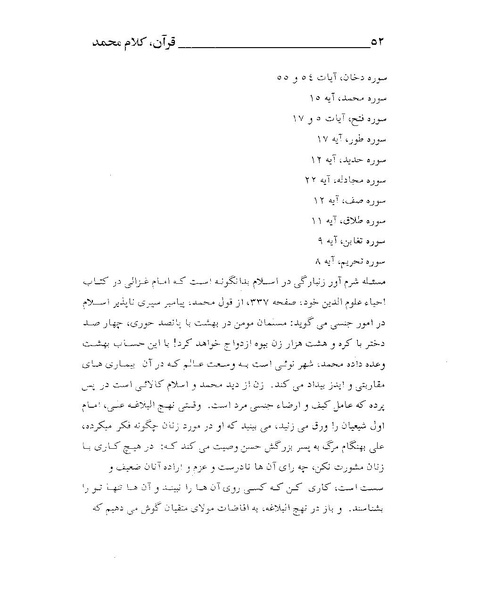 ۵۲ ــــــــــــــــــــــــــــــــــــ قرآن، کلام محمد
سوره دخان، آیات ٥٤ و ٥٥
سوره محمد، آیه ١٥
سوره فتح، آیات ٥ و ١٧
سوره طور، آیه ١٧
سوره حدید، آیه ١٢
سوره مجادله، آیه ٢٢
سوره صف، آیه ١٢
سوره طلاق، آیه ١١
سوره تغابن، آیه ٩
سوره تحریم، آیه ٨
مسئله شرم آور زنبارگی در اسلام بدانگونه است که امام غزالی در کتاب
احیاء علوم الدین خود، صفحه ٣٣٧، از قول محمد، پیامبر سیری ناپذیر اسلام
در امور جنسی می گوید: مسلمان مومن در بهشت با پانصد حوری، چهار صد
دختر با کره و هشت هزار زن بیوه ازدواج خواهد کرد! با این حساب بهشت
وعده داده محمد، شهر نوئی است به وسعت عالم که در آن بیماری های
مقاربتی و ایدز بیداد می کند. زن از دید محمد و اسلام کالائی است در پس
پرده که عامل کیف و ارضاء جنسی مرد است. وقتی نهج البلاغه علی، امام
اول شیعیان را ورق می زنید، می بینید که او در مورد زنان چگونه فکر میکرده،
علی بهنگام مرگ به پسر بزرگش حسن وصیت می کند که: در هیچ کاری با
زنان مشورت نکن، چه رای آن ها نادرست و عزم و اراده آنان ضعیف و
سست است، کاری کن که کسی روی آن ها را نبیند و آن ها تنها تو را
بشناسند. و باز در نهج البلاغه، به افاضات مولای متقیان گوش می دهیم که